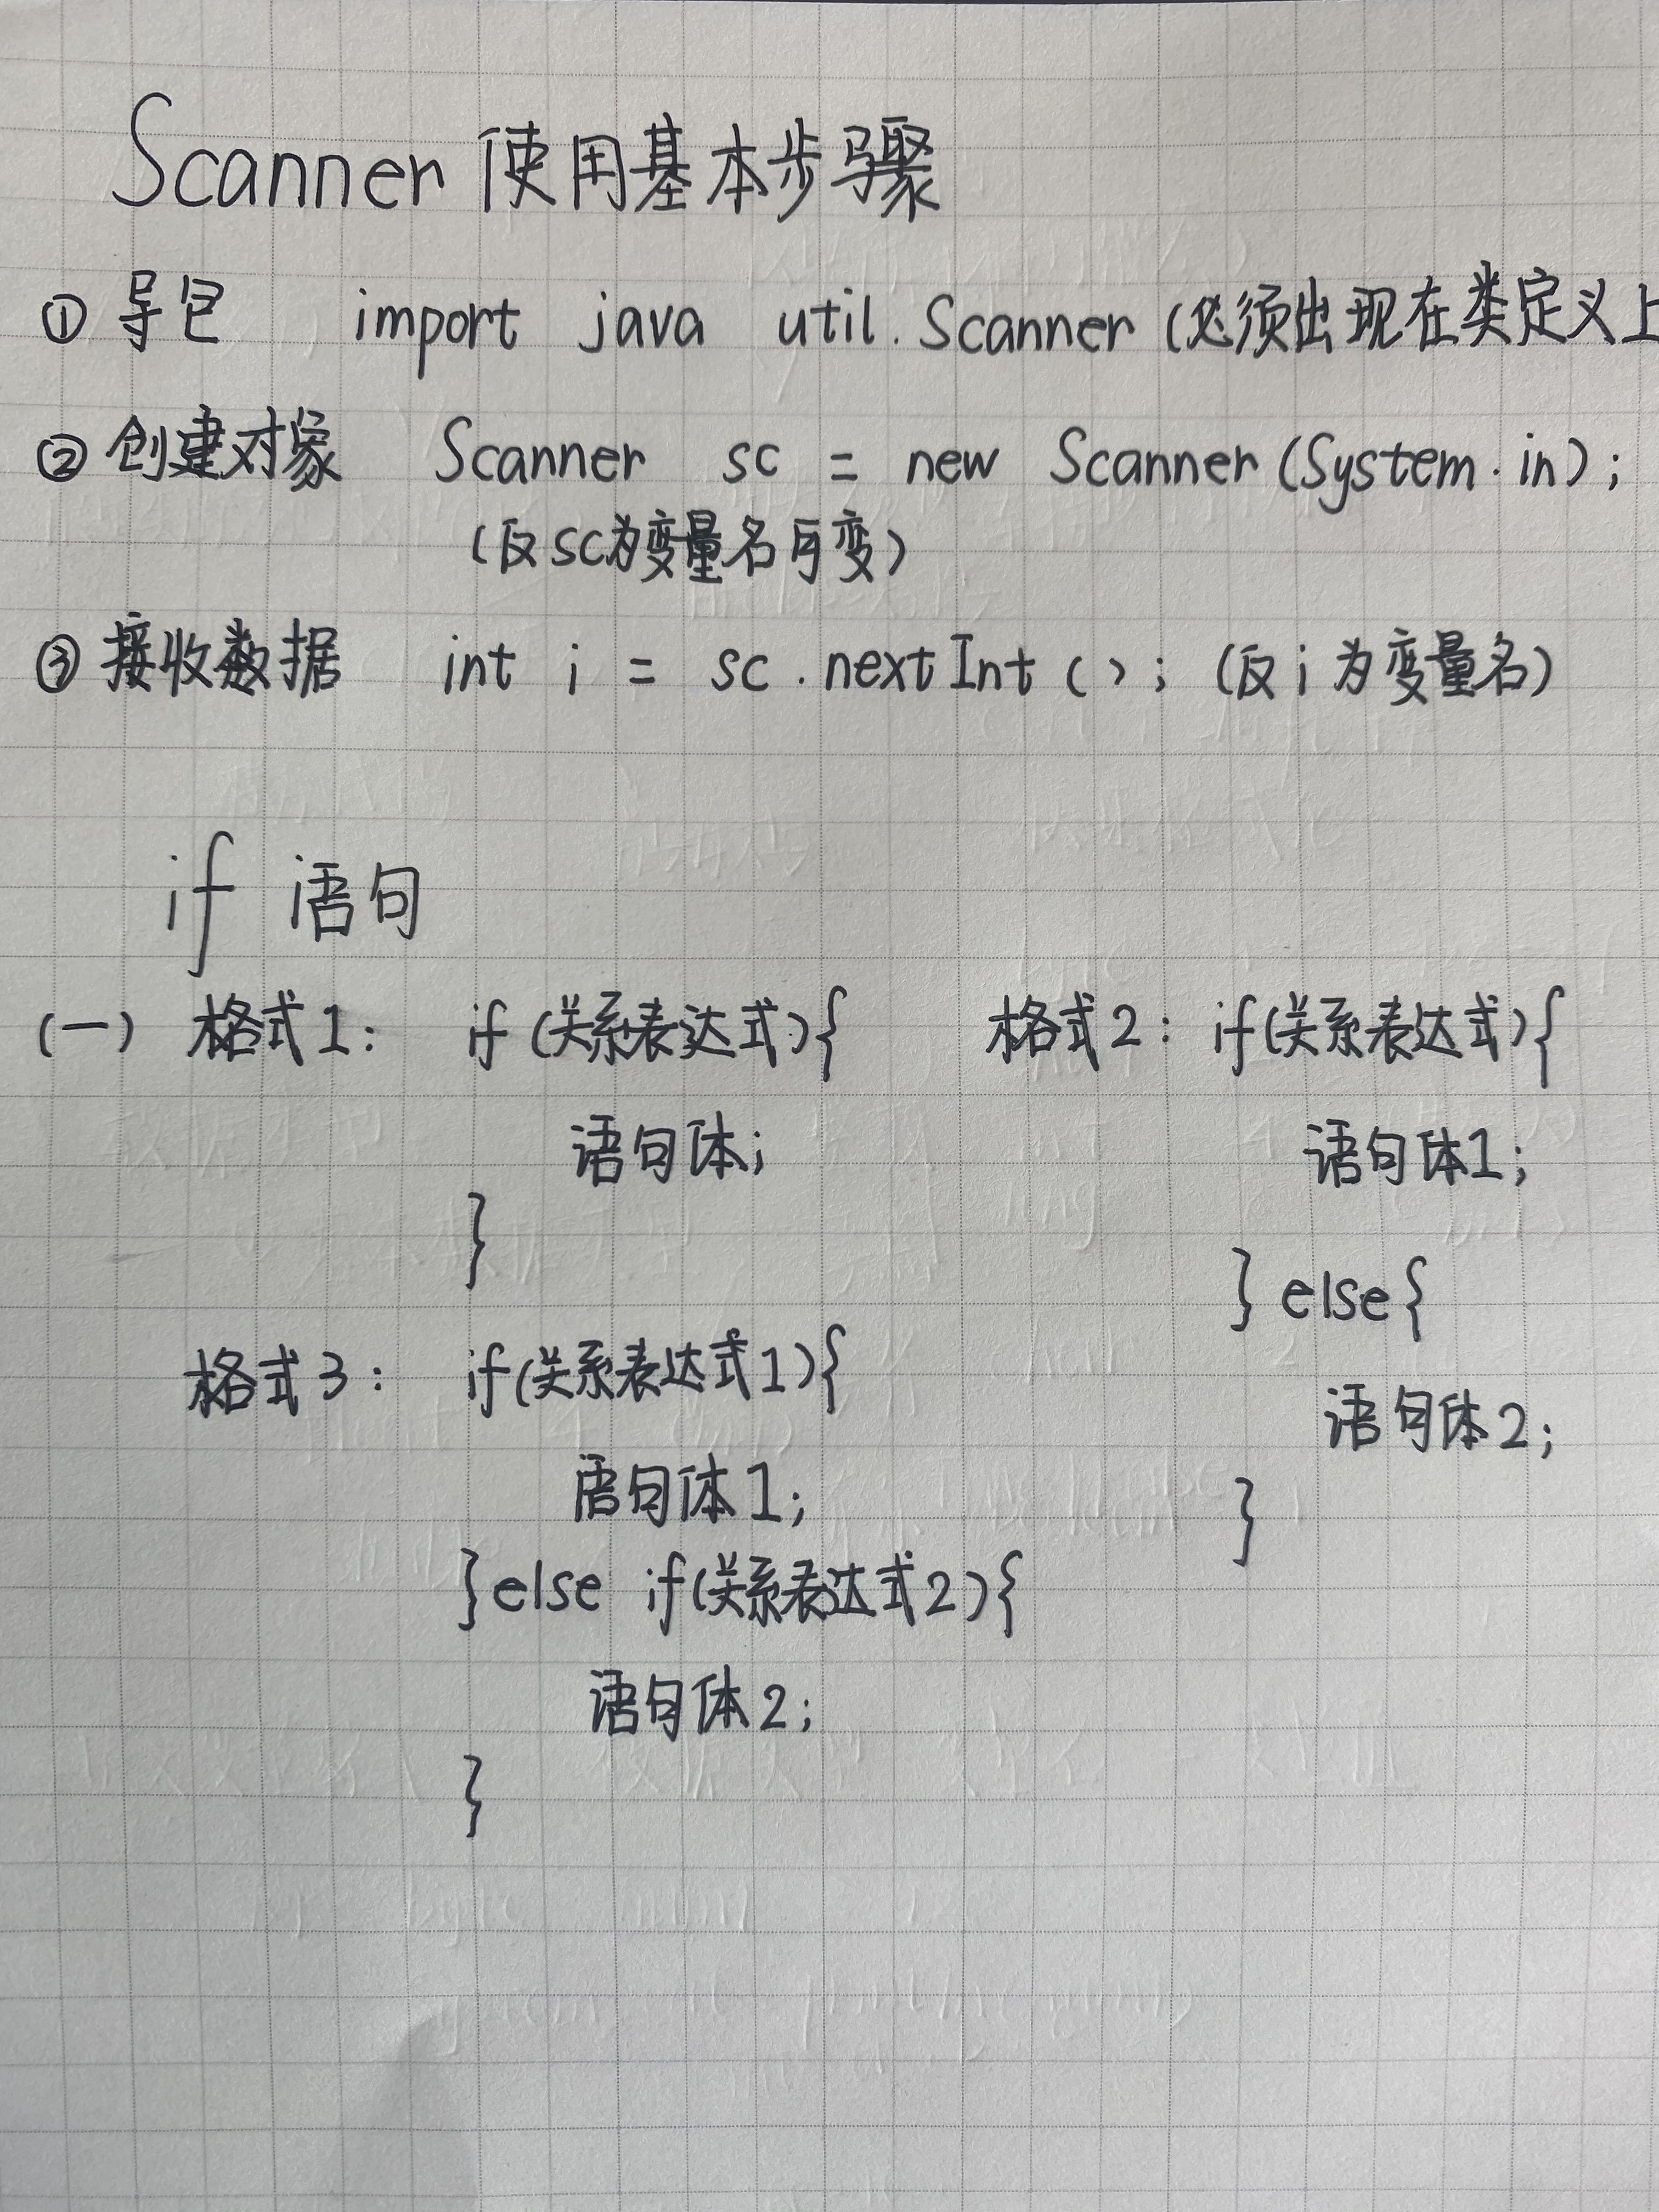 Scanner 使用基本步骤
① 导包 import java util. Scanner (必须出现在类定义上
② 创建对象 Scanner sc = new Scanner (System.in);
(仅sc为变量名可变)
③ 接收数据 int i = sc.nextInt(); (仅i为变量名)
if 语句
(一) 格式1: if (关系表达式){
语句体;
}
格式2: if(关系表达式){
语句体1;
} else {
语句体2;
}
格式3: if(关系表达式1){
语句体1;
}else if(关系表达式2){
语句体2;
}